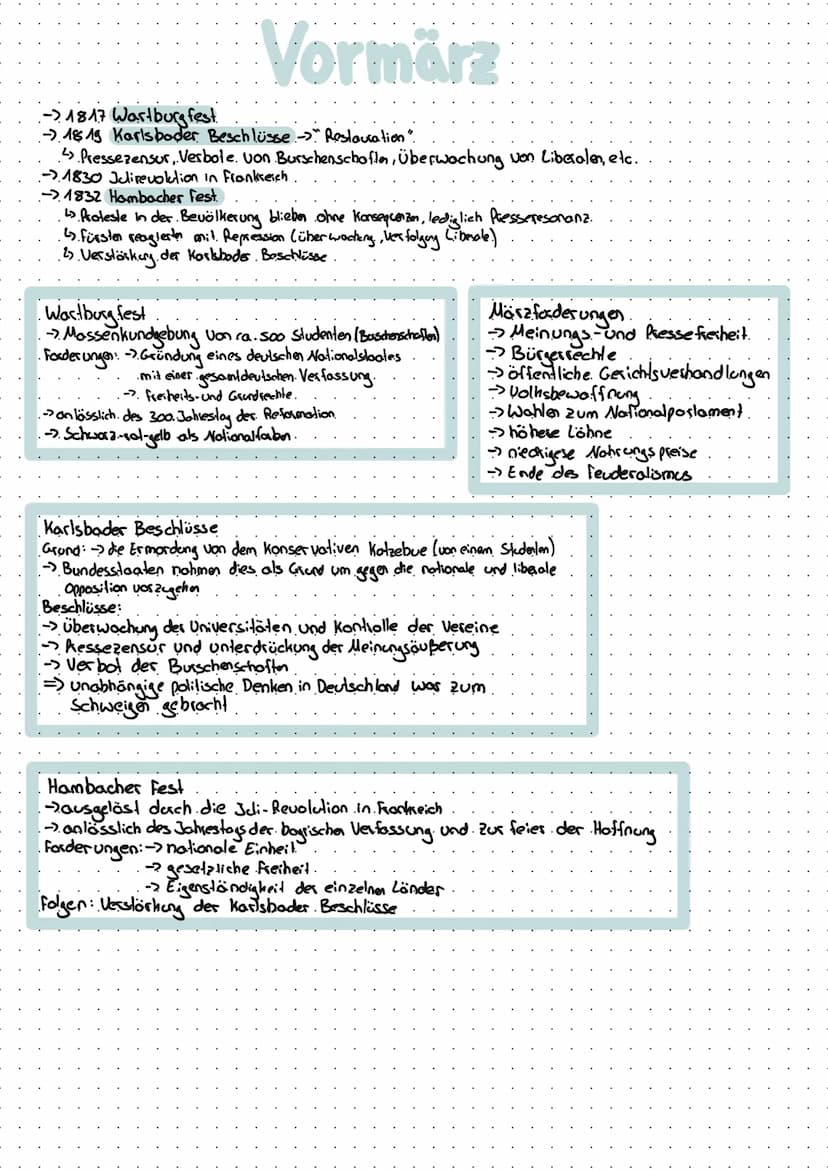 Vormärz
→ 1817 Wartburgfest
→ 1819 Karlsbader Beschlüsse → "Restauration"
↳ Pressezensur, Verbote von Burschenschaften, Überwachung von Liberalen, etc.
→ 1830 Julirevolution in Frankreich
→ 1832 Hambacher Fest
↳ Proteste in der Bevölkerung blieben ohne Konsequenzen, lediglich Presseresonanz
↳ Fürsten reagierten mit Repression (Überwachung, Verfolgung Liberale)
↳ Verstärkung der Karlsbader Beschlüsse
Wartburgfest
→ Massenkundgebung von ca. 500 Studenten (Burschenschaften)
Forderungen: → Gründung eines deutschen Nationalstaates
mit einer gesamtdeutschen Verfassung
→ Freiheits- und Grundrechte
→ anlässlich des 300. Jahrestag der Reformation
→ Schwarz-rot-gelb als Nationalfarben
Märzforderungen
→ Meinungs- und Pressefreiheit
→ Bürgerrechte
→ öffentliche Gerichtsverhandlungen
→ Volksbewaffnung
→ Wahlen zum Nationalparlament
→ höhere Löhne
→ niedrigere Nahrungspreise
→ Ende des Feuderalismus
Karlsbader Beschlüsse
Grund: → die Ermordung von dem Konservativen Kotzebue (von einem Studenten)
→ Bundesstaaten nahmen dies als Grund um gegen die nationale und liberale
Opposition vorzugehen
Beschlüsse:
→ Überwachung der Universitäten und Kontrolle der Vereine
→ Pressezensur und unterdrückung der Meinungsäußerung
→ Verbot der Burschenschaften
⇒ unabhängige politische Denken in Deutschland war zum
Schweigen gebracht
Hambacher Fest
→ ausgelöst durch die Juli-Revolution in Frankreich
→ anlässlich des Jahrestags der bayrischen Verfassung und zur feier der Hoffnung
Forderungen: → nationale Einheit
→ gesetzliche Freiheit
→ Eigenständigkeit der einzelnen Länder
Folgen: Verstärkung der Karlsbader Beschlüsse